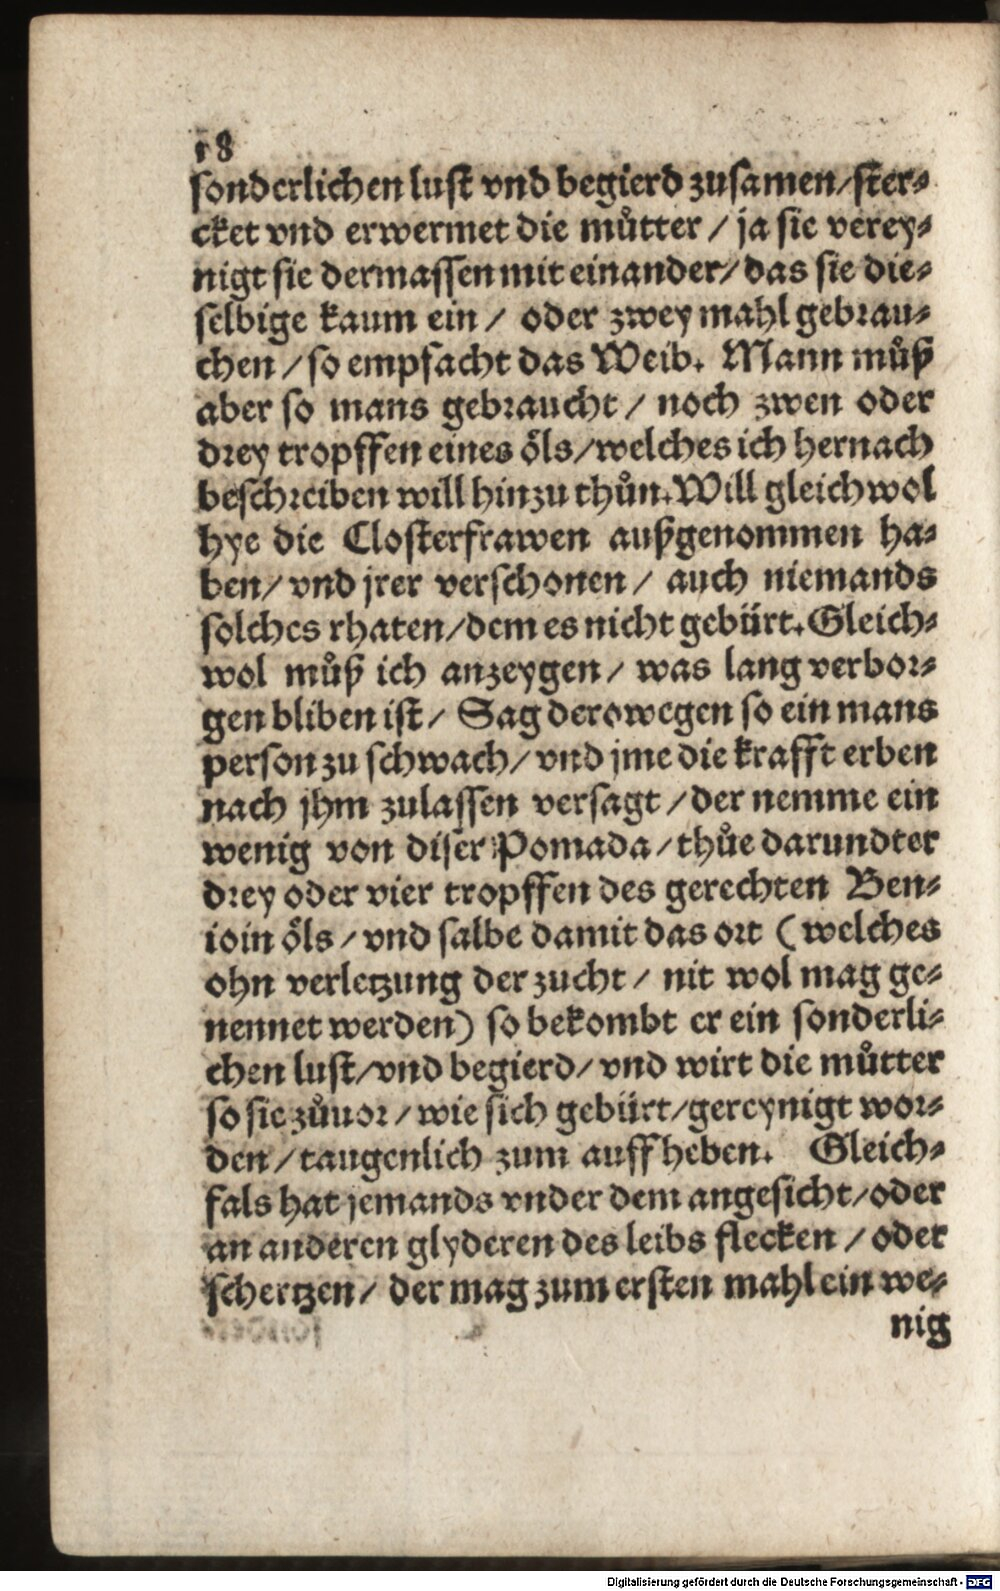 18
sonderlichen lust vnd begierd zusamen/ster⸗
cket vnd erwermet die můtter / ja sie verey⸗
nigt sie dermassen mit einander/das sie die⸗
selbige kaum ein / oder zwey mahl gebrau⸗
chen / so empfacht das Weib. Mann můß
aber so mans gebraucht / noch zwen oder
drey tropffen eines öls/welches ich hernach
beschreiben will hinzu thůn. Will gleichwol
hye die Closterfrawen außgenommen ha⸗
ben/vnd jrer verschonen / auch niemands
solches rhaten/dem es nicht gebürt. Gleich⸗
wol můß ich anzeygen / was lang verbor⸗
gen bliben ist / Sag derowegen so ein mans
person zu schwach/vnd jme die krafft erben
nach jhm zulassen versagt / der nemme ein
wenig von diser Pomada / thůe darundter
drey oder vier tropffen des gerechten Ben⸗
ioin öls / vnd salbe damit das ort (welches
ohn verletzung der zucht / nit wol mag ge⸗
nennet werden) so bekombt er ein sonderli⸗
chen lust/vnd begierd/vnd wirt die můtter
so sie zůuor / wie sich gebürt/gereynigt wor⸗
den / taugenlich zum auffheben. Gleich⸗
fals hat jemands vnder dem angesicht/oder
an anderen glyderen des leibs flecken / oder
schertzen / der mag zum ersten mahl ein we⸗
nig
Digitalisierung gefördert durch die Deutsche Forschungsgemeinschaft - DFG